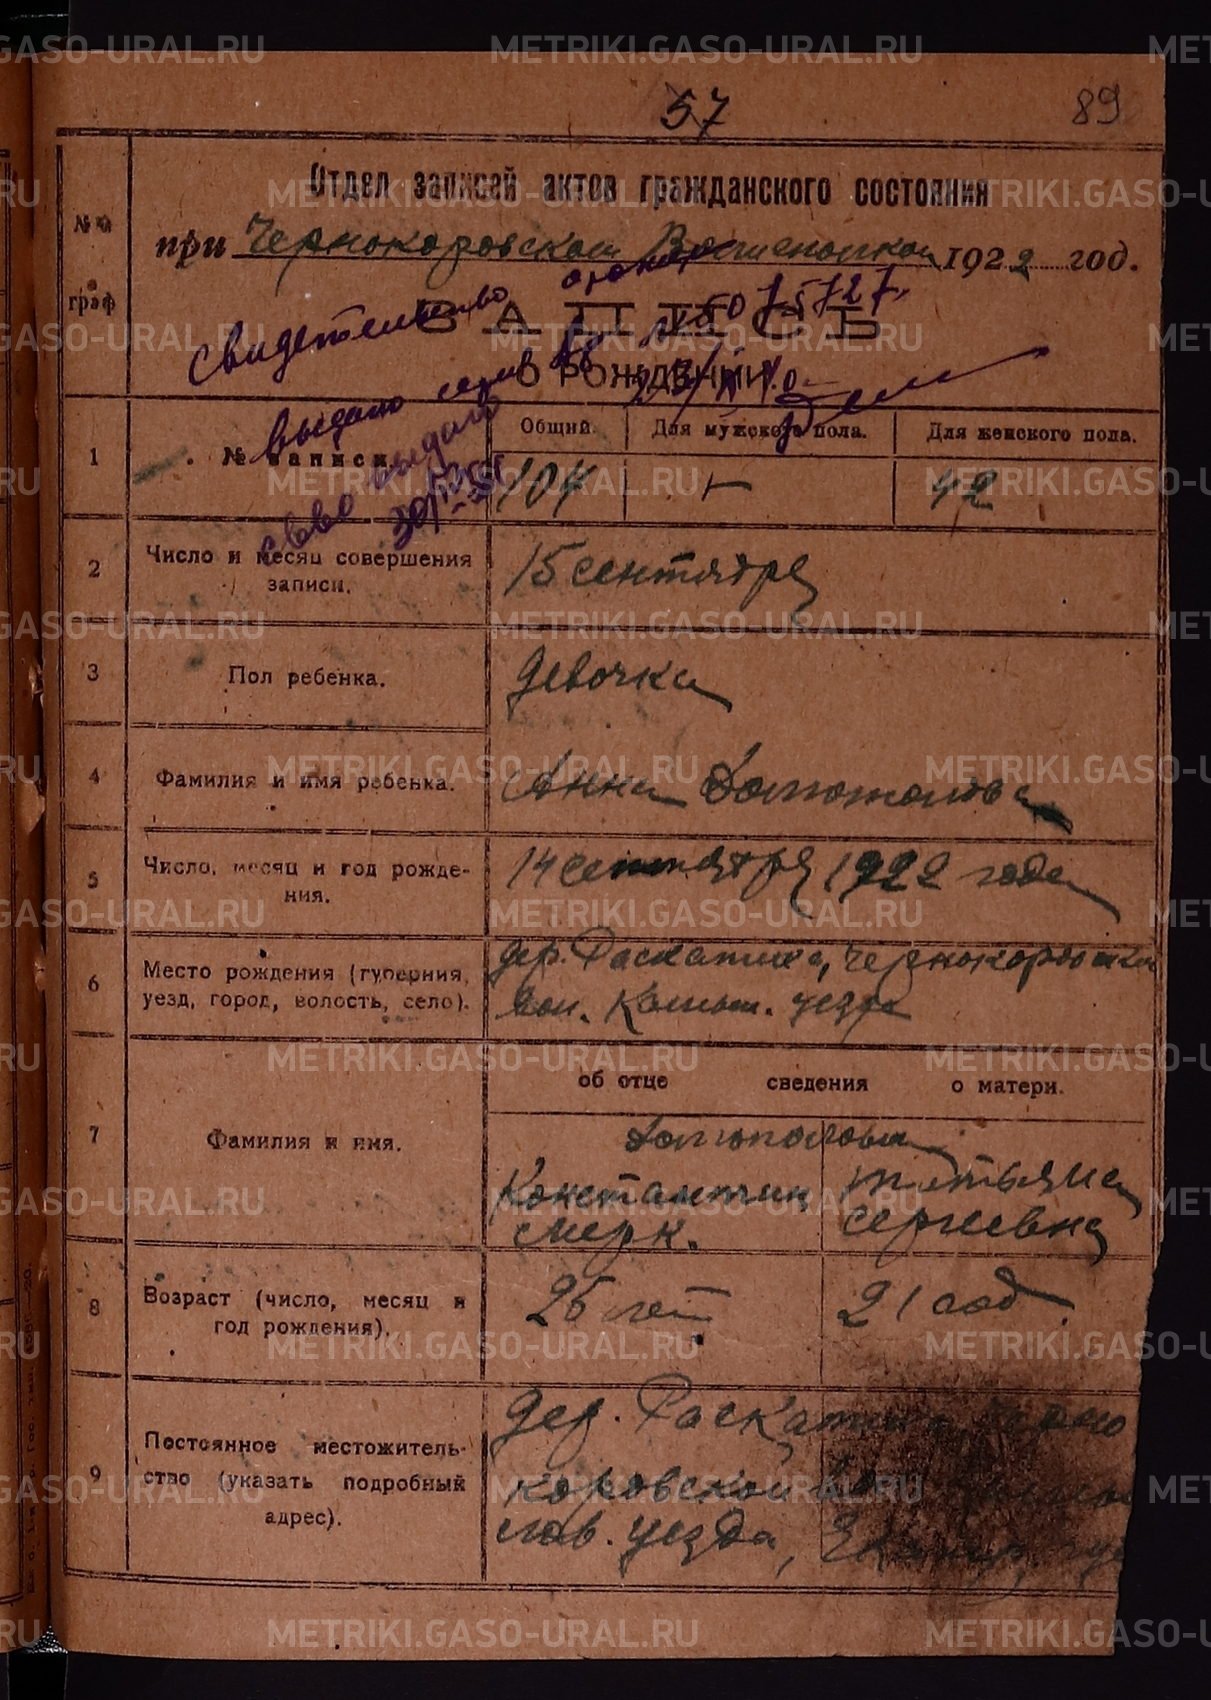 57
89
Отдел записей актов гражданского состояния
№№ граф
при Чернокоровском Волисполкоме 1922 год.
ЗАПИСЬ
О РОЖДЕНИИ
свидетельство
выдано
1
№ записи.
Общий.
Для мужского пола.
Для женского пола.
104
–
42
2
Число и месяц совершения
записи.
15 сентября
3
Пол ребенка.
девочка
4
Фамилия и имя ребенка.
Анна
5
Число, месяц и год рожде-
ния.
14 сентября 1922 года
6
Место рождения (губерния,
уезд, город, волость, село).
дер. Раскатиха, Чернокоровской
вол. Камыш. уезда
об отце сведения о матери.
7
Фамилия и имя.
Константин
Мерк.
Татьяна
Сергеевна
8
Возраст (число, месяц и
год рождения).
25 лет
21 год
9
Постоянное местожитель-
ство (указать подробный
адрес).
дер. Раскатиха Черно
коровской вол. Камыш
лов. уезда, Екатер. гу
METRIKI.GASO-URAL.RU